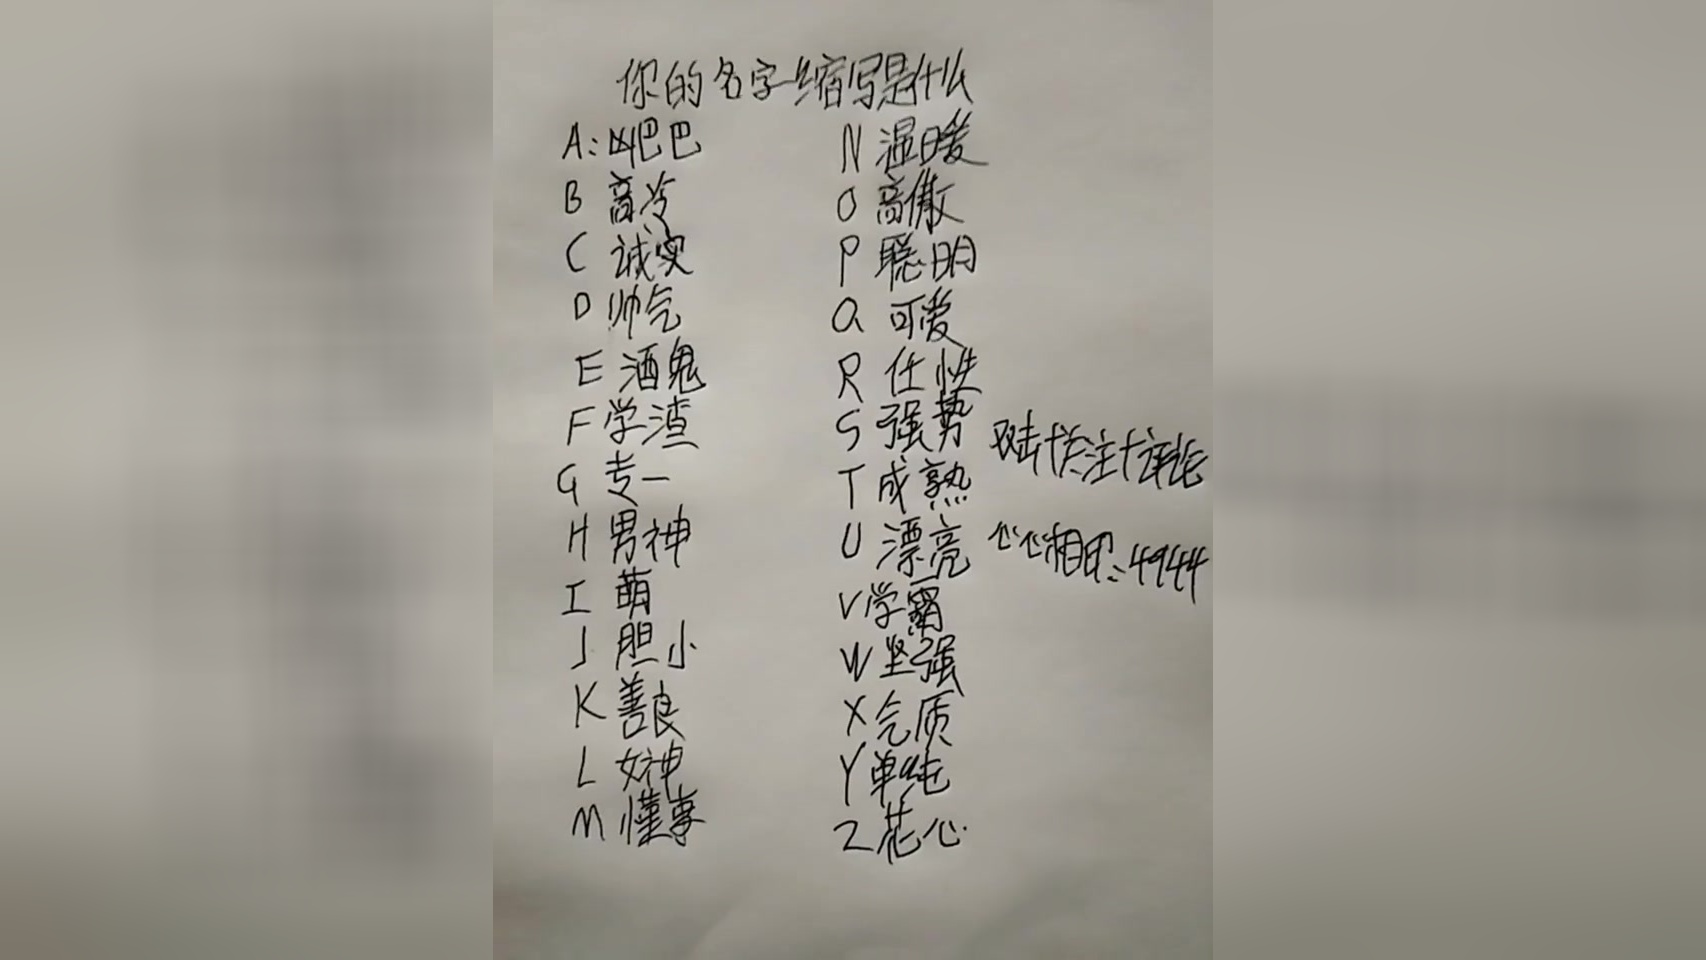 你的名字缩写是什么
A:凶巴巴
B 高冷
C 诚实
D 帅气
E 酒鬼
F 学渣
G 专一
H 男神
I 萌
J 胆小
K 善良
L 女神
M 懂事
N 温暖
O 高傲
P 聪明
Q 可爱
R 任性
S 强势
T 成熟
U 漂亮
V 学霸
W 坚强
X 气质
Y 单纯
Z 花心
双击+关注+评论
心心相印:4944